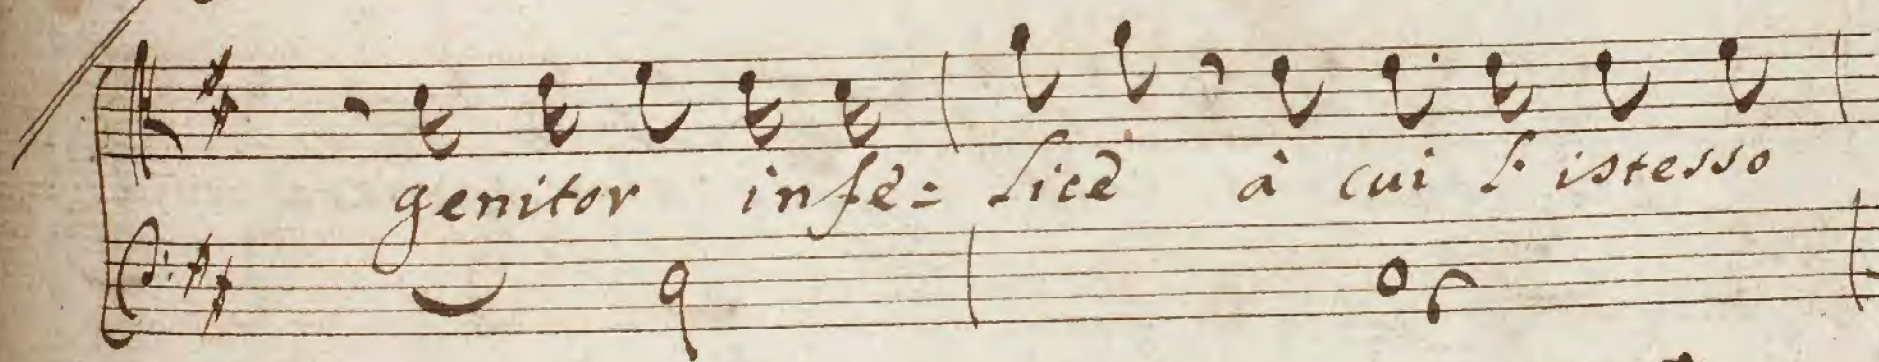 genitor infe= lice à cui l'istesso